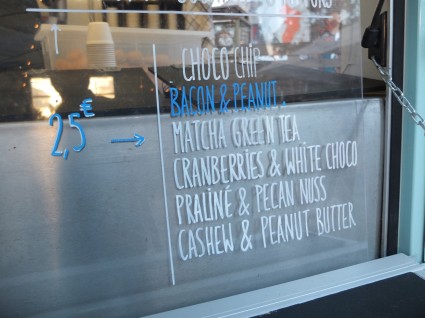 CHOCO CHIP
BACON & PEANUT
2,5€
MATCHA GREEN TEA
CRANBERRIES & WHITE CHOCO
PRALINÉ & PECAN NUSS
CASHEW & PEANUT BUTTER